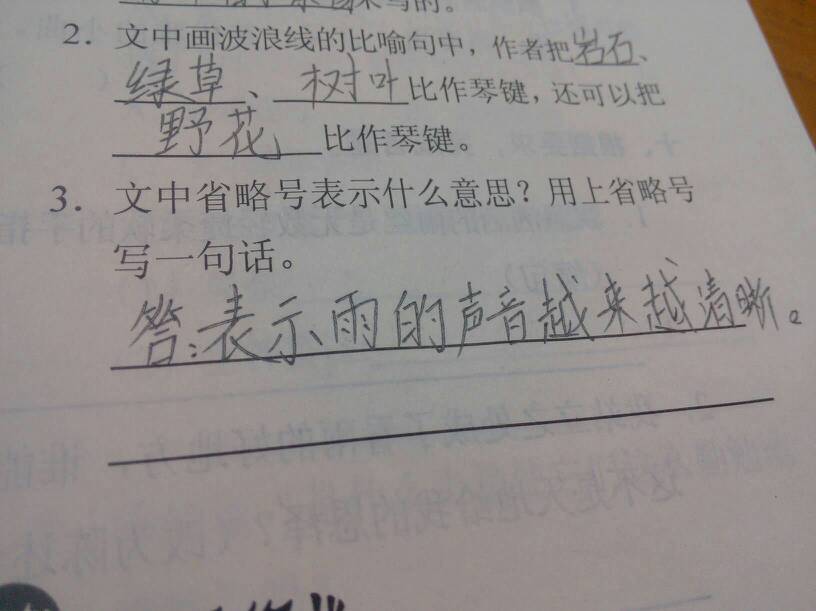 写的。
2. 文中画波浪线的比喻句中，作者把岩石、
绿草、树叶比作琴键，还可以把
野花比作琴键。
3. 文中省略号表示什么意思？用上省略号
写一句话。
答：表示雨的声音越来越清晰。